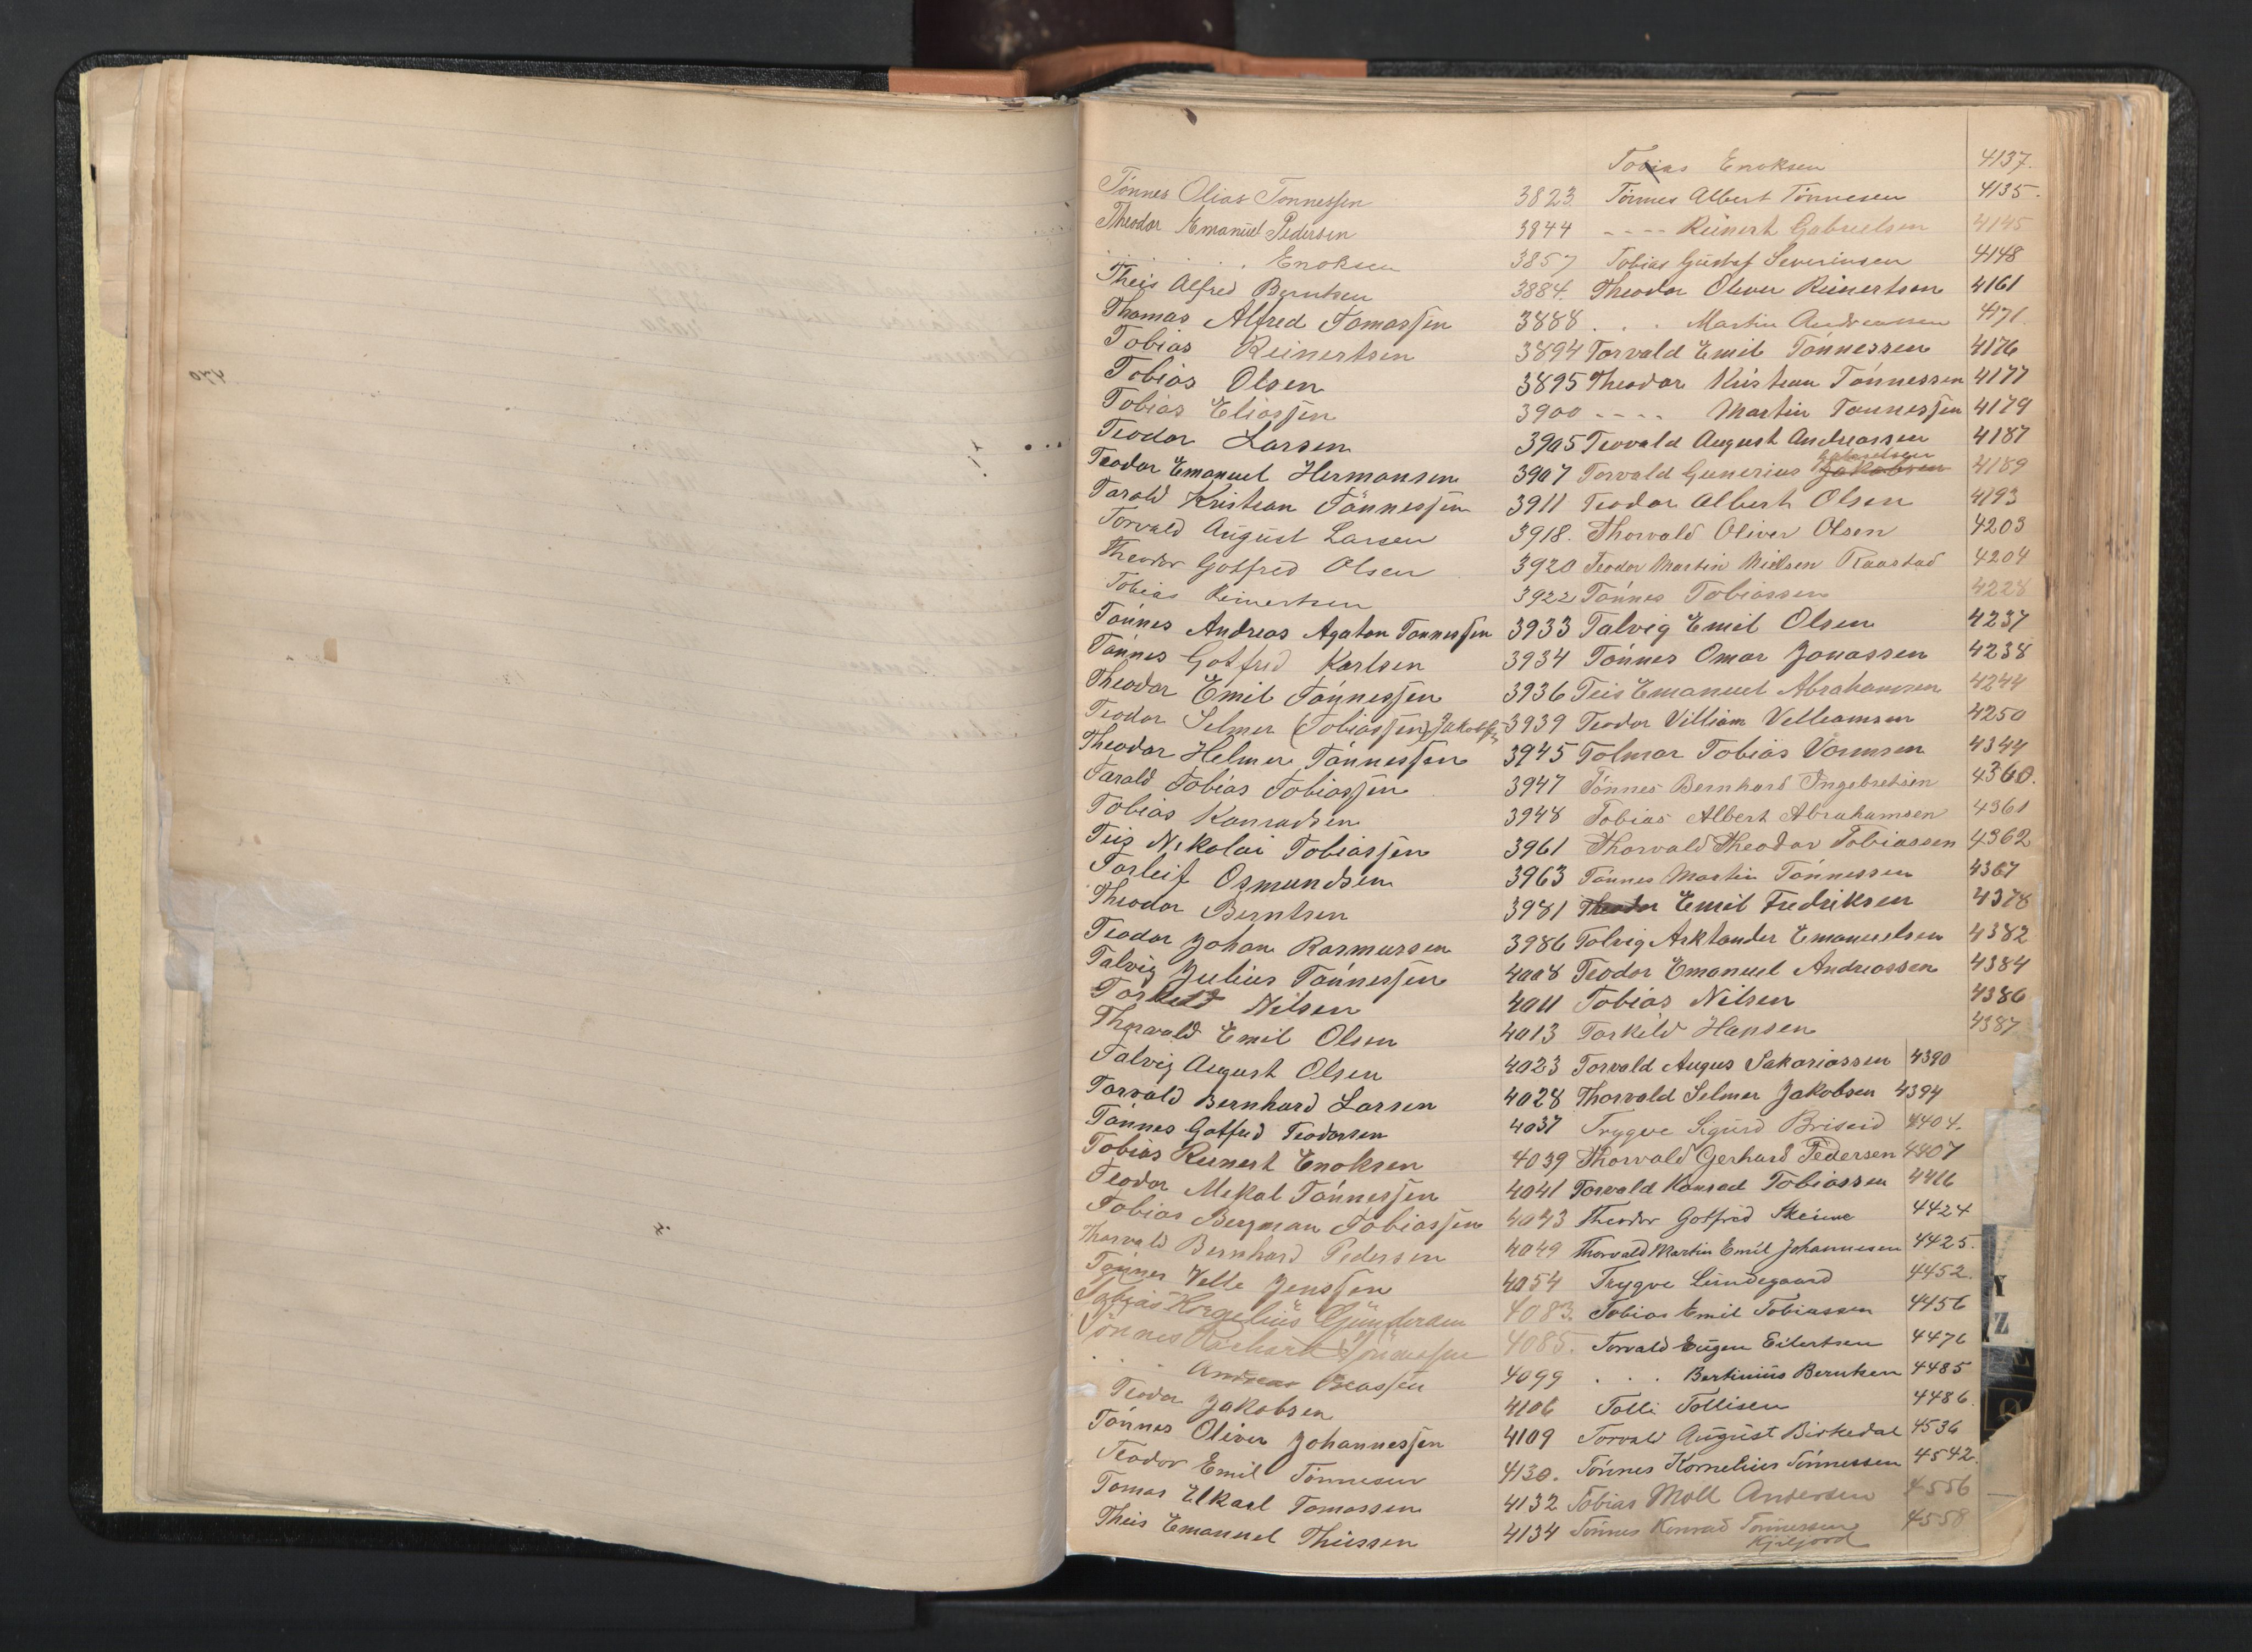 Tobias Enoksen 4137.
Tönnes Olias Tonnessen 3823.
Theodor Emanuel Pedersen 3844
. . . . Enoksen 3857
Theis Alfred Berntsen 3884.
Thomas Alfred Tomassen 3888
Tobias Reinertsen 3894
Tobias Olsen 3895
Tobias Eliassen 3900
Teodor Larsen 3905
Teodor Emanuel Hermansen 3907
Tarald Kristian Tönnessen 3911
Torvald August Larsen 3918.
Theodor Gotfred Olsen 3920
Tobias Reinertsen 3922
Tönnes Andreas Agaton Tonnessen 3933
Tönnes Gotfred Karlsen 3934
Theodor Emil Tönnessen 3936
Teodor Selmer (Tobiassen) Jakobsen 3939
Theodor Helmer Tönnessen 3945
Tarald Tobias Tobiassen 3947
Tobias Konradsen 3948
Teis Nikolai Tobiassen 3961
Torleif Osmundsen 3963
Theodor Berntsen 3981
Teodor Johan Rasmussen 3986
Talvig Julius Tönnessen 4008
Torkild Nilsen 4011
Thorvald Emil Olsen 4013
Talvig August Olsen 4023
Torvald Bernhard Larsen 4028
Tönnes Gotfred Teodorsen 4037
Tobias Reinert Enoksen 4039
Teodor Mekal Tönnessen 4041
Tobias Bergman Tobiassen 4043
Thorvald Bernhard Pedersen 4049
Tönnes Velle Jenssen 4054
Tobias 4083.
Tönnes Richard Tönnessen 4085.
. . Andreas 4099
Teodor Jakobsen 4106
Tönnes Oliver Johannessen 4109
Teodor Emil Tönnesen 4130.
Tomas Elkael Tomassen 4132
Theis Emanuel Theissen 4134
Tönnes Albert Tönnesen 4135.
- - - - Reinert Gabrielsen 4145
Tobias Gustaf Severinsen 4148
Theodor Oliver Reinertsen 4161
. . . Martin Andreassen 4171.
Torvald Emil Tönnessen 4176
Theodor Kristian Tönnessen 4177
- - - - Martin Tonnessen 4179
Teovald August Andreassen 4187
Torvald Gunerius Jakobsen Gabrielsen 4189
Teodor Albert Olsen 4193
Thorvald Oliver Olsen 4203
Teodor Martin Nielsen Raastad 4204
Tönnes Tobiassen 4228
Talvig Emil Olsen 4237
Tönnes Omar Jonassen 4238
Teis Emanuel Abrahamsen 4244
Teodor Villiam Velleamsen 4250
Tolmar Tobias Vormsen 4344
Tönnes Bernhard Ingebretsen 4360.
Tobias Albert Abrahamsen 4361
Thorvald Theodor Tobiassen 4362
Tönnes Martin Tönnessen 4367
Theodor Emil Fredriksen 4378
Tolvig Arktander Emanuelsen 4382
Teodor Emanuel Andreassen 4384
Tobias Nilsen 4386
Torkild Hansen 4387
Torvald Augus Sakariassen 4390
Thorvald Selmer Jakobsen 4394
Trygve Sigurd Briseid 4404.
Thorvald Gerhard Pedersen 4407
Torvald Konrad Tobiassen 4416
Theodor Gotfred Skeiwe 4424
Thorvald Martin Emil Johannesen 4425.
Trygve Lundegaard 4452.
Tobias Emil Tobiassen 4456
Torvald Eugen Eilertsen 4476
. . . Bertinius Berntsen 4485
Tolli Tollisen 4486.
Torvald August Birkedal 4536
Tönnes Kornelius Tönnessen 4542.
Tobias Moll Andersen 4556
Tönnes Konrad Tönnessen 4558
Y
Z